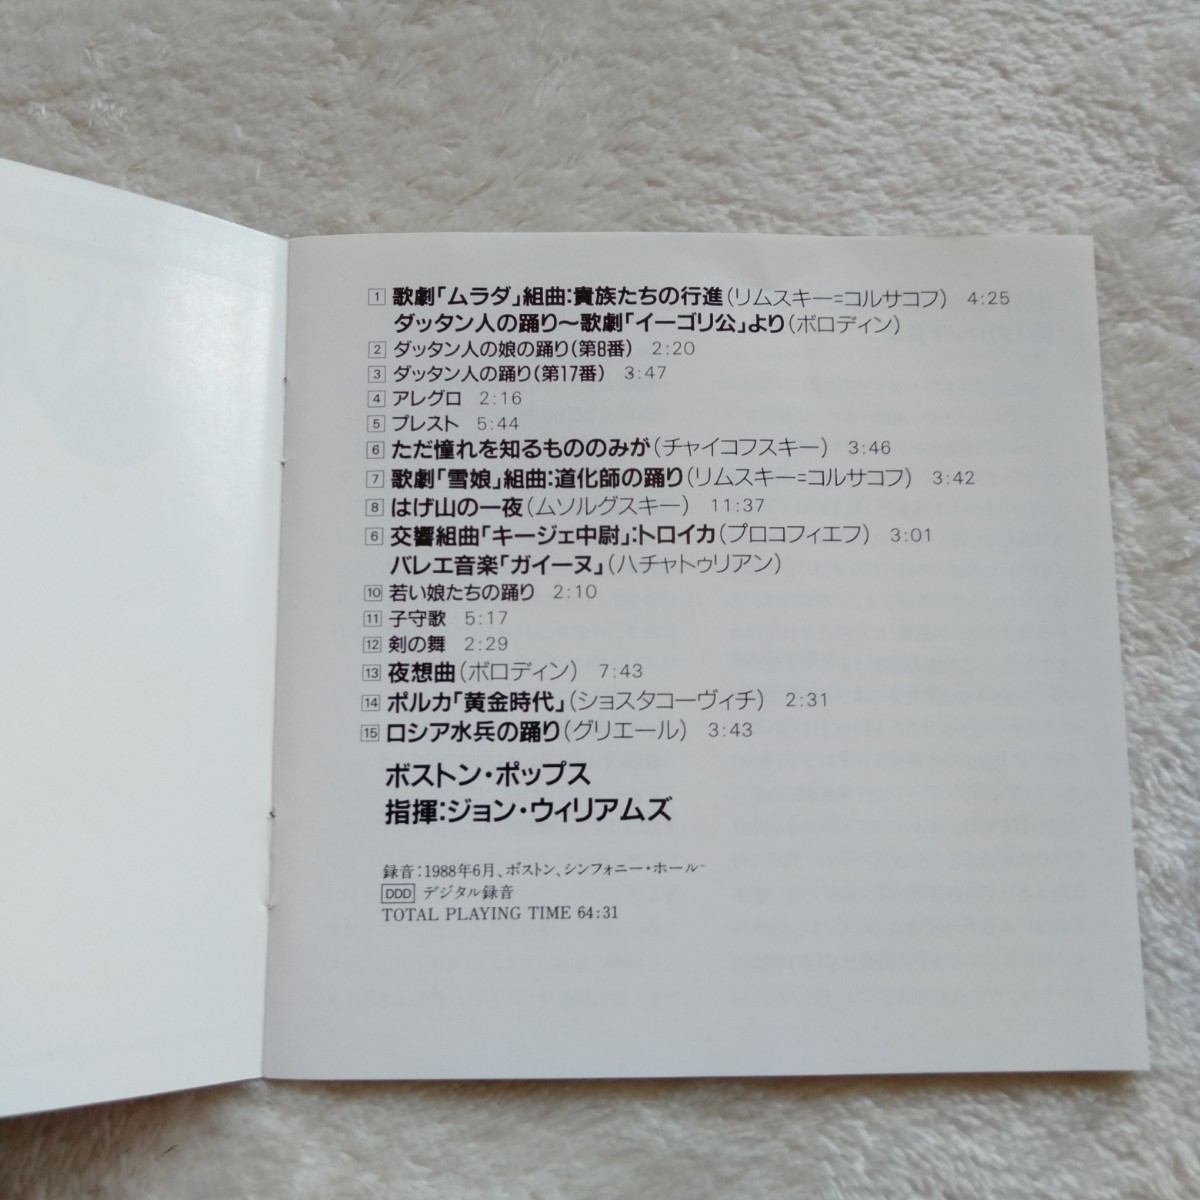 1 歌劇「ムラダ」組曲:貴族たちの行進(リムスキー=コルサコフ) 4:25
ダッタン人の踊り〜歌劇「イーゴリ公」より(ボロディン)
2 ダッタン人の娘の踊り(第8番) 2:20
3 ダッタン人の踊り(第17番) 3:47
4 アレグロ 2:16
5 プレスト 5:44
6 ただ憧れを知るもののみが(チャイコフスキー) 3:46
7 歌劇「雪娘」組曲:道化師の踊り(リムスキー=コルサコフ) 3:42
8 はげ山の一夜(ムソルグスキー) 11:37
6 交響組曲「キージェ中尉」:トロイカ(プロコフィエフ) 3:01
バレエ音楽「ガイーヌ」(ハチャトゥリアン)
10 若い娘たちの踊り 2:10
11 子守歌 5:17
12 剣の舞 2:29
13 夜想曲(ボロディン) 7:43
14 ポルカ「黄金時代」(ショスタコーヴィチ) 2:31
15 ロシア水兵の踊り(グリエール) 3:43
ボストン・ポップス
指揮:ジョン・ウィリアムズ
録音:1988年6月、ボストン、シンフォニー・ホール
DDD デジタル録音
TOTAL PLAYING TIME 64:31